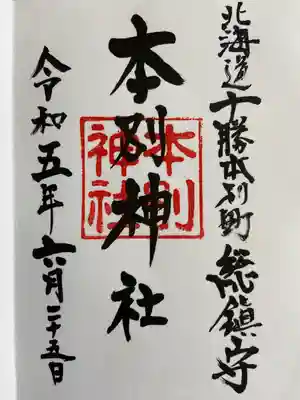 北海道十勝本別町総鎮守
本別神社
本別神社
令和五年六月二十五日